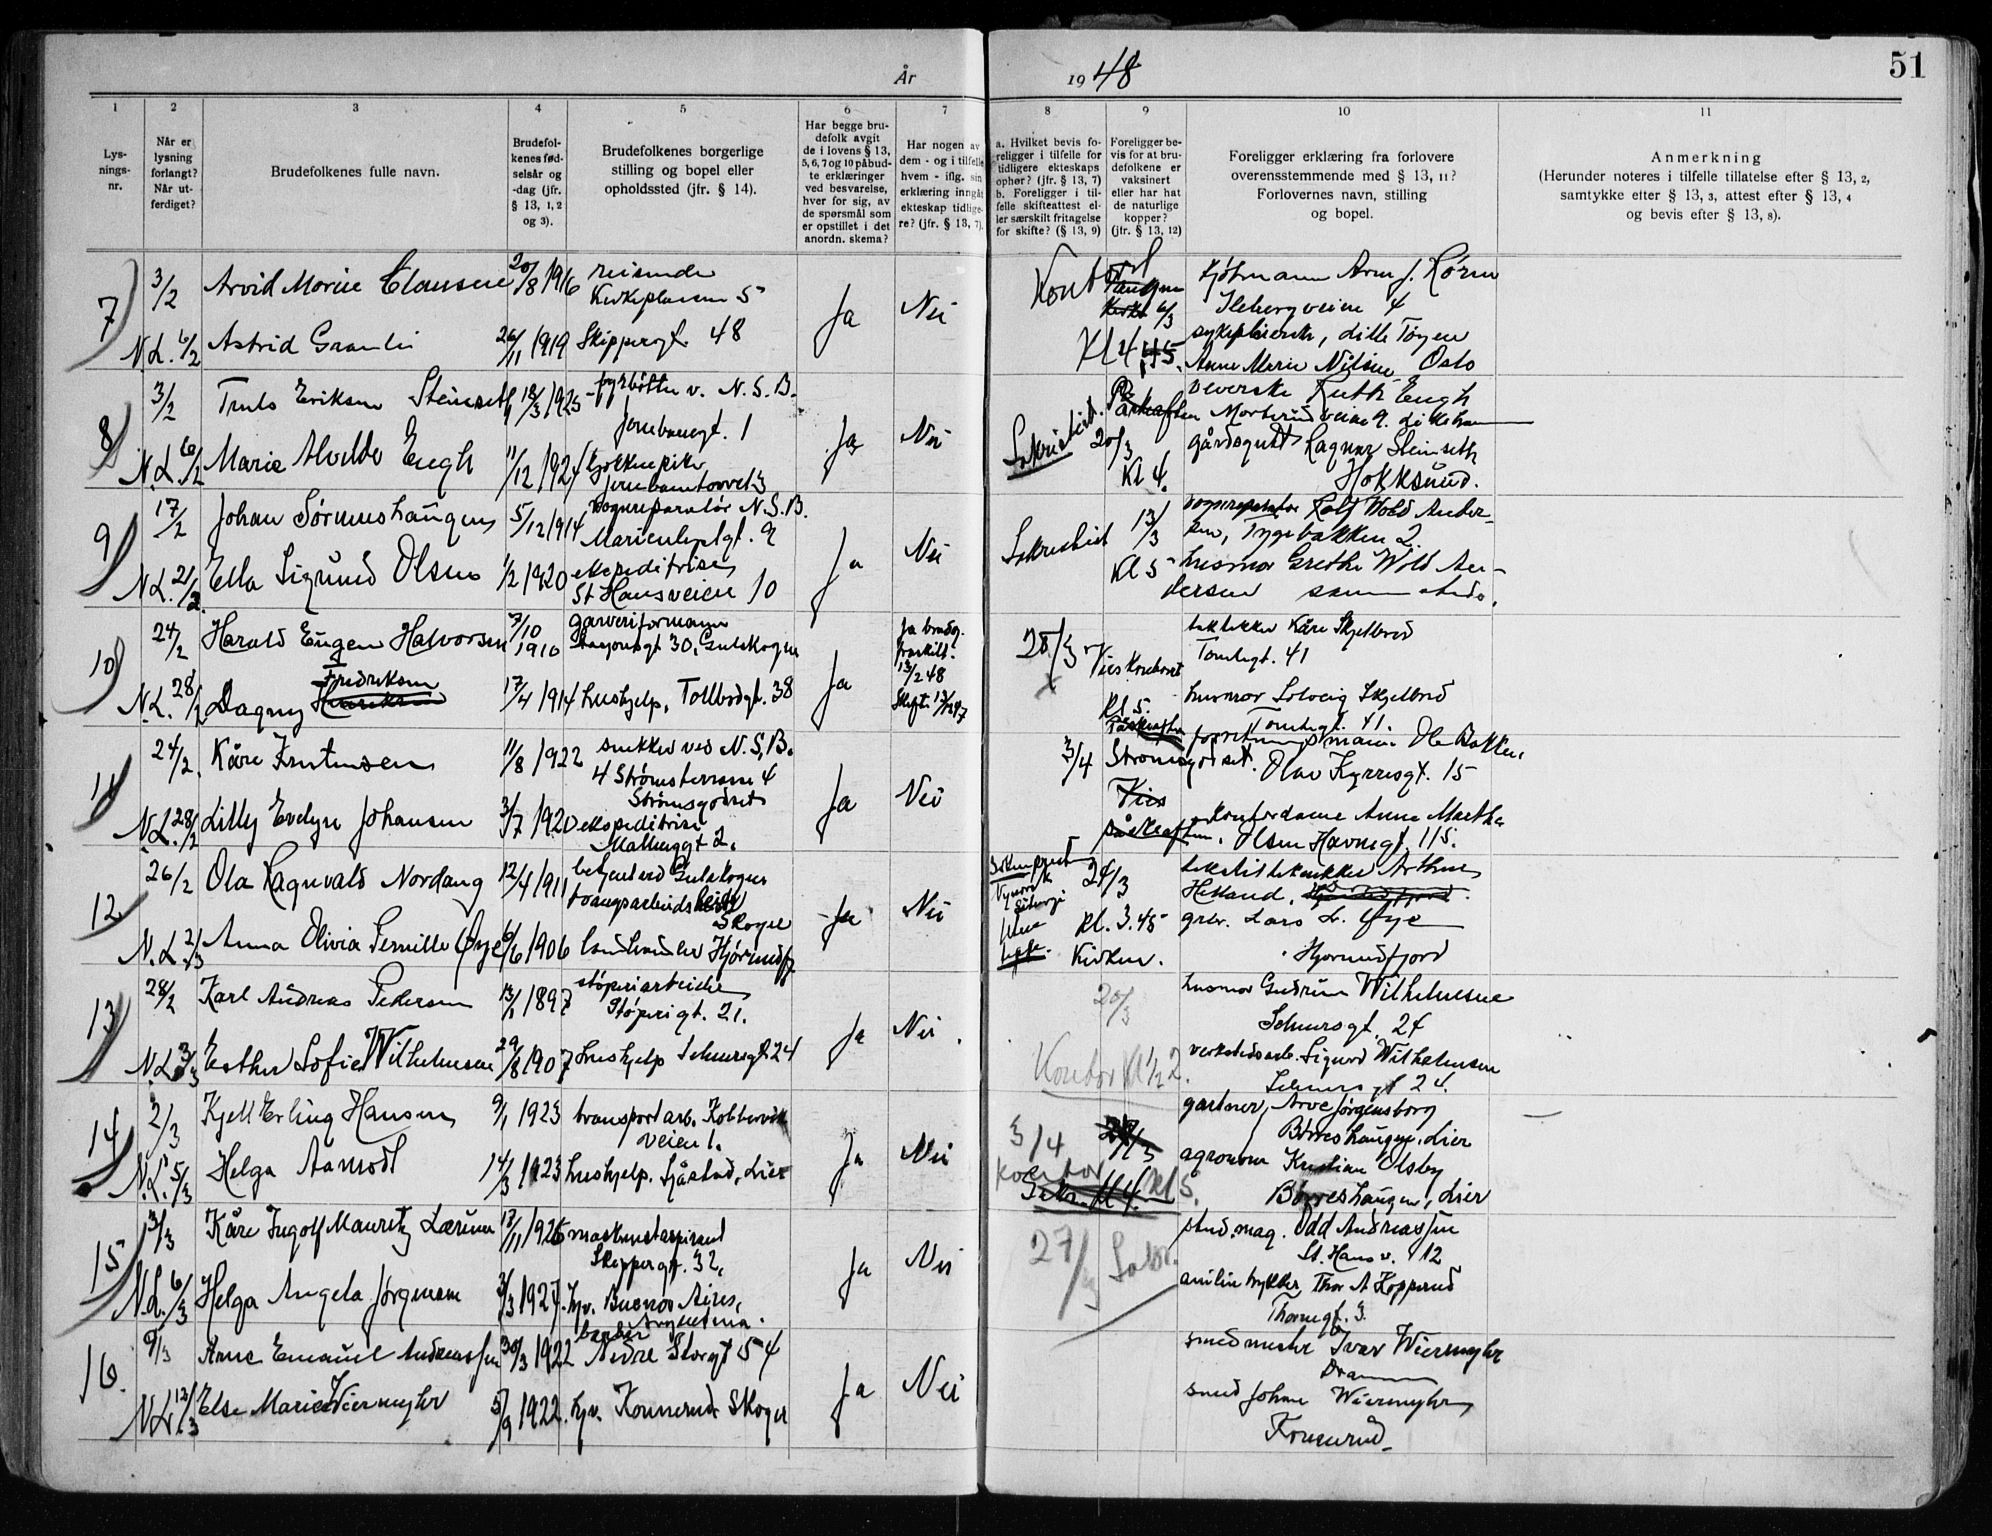 År
19 48
51
1
2
3
4
5
6
7
8
9
10
11
Lys-
nings-
nr.
Når er
lysning
forlangt?
Når ut-
ferdiget?
Brudefolkenes fulle navn.
Brudefol-
kenes fød-
selsår og
-dag (jfr.
§ 13, 1, 2
og 3).
Brudefolkenes borgerlige
stilling og bopel eller
opholdssted (jfr. § 14).
Har begge bru-
defolk avgit
de i lovens § 13,
5, 6, 7 og 10 påbud-
te erklæringer
ved besvarelse,
hver for sig, av
de spørsmål som
er opstillet i det
anordn. skema?
Har nogen av
dem - og i tilfelle
hvem - iflg. sin
erklæring inngått
ekteskap tidlige-
re? (jfr. § 13, 7).
a. Hvilket bevis fo-
religger i tilfelle for
tidligere ekteskaps
ophør? (jfr. § 13, 7)
b. Foreligger i til-
felle skifteattest el-
ler særskilt fritagelse
for skifte? (§ 13, 9)
Foreligger be-
vis for at bru-
defolkene er
vaksinert
eller har hat
de naturlige
kopper?
(jfr. § 13, 12)
Foreligger erklæring fra forlovere
overensstemmende med § 13, 11?
Forlovernes navn, stilling
og bopel.
Anmerkning
(Herunder noteres i tilfelle tillatelse efter § 13, 2,
samtykke efter § 13, 3, attest efter § 13, 4
og bevis efter § 13, 8).
7
3/2
Arvid Clausen
20/8 1916
reisende
Kirkeplassen 5
Ja
Nei
Kontoret
6/3
Kl 4
N.L. 6/2
Astrid Gramli
26/11 1919
Skippergt. 48
4
sykepleierske, Lille Tøyen
Oslo
8
3/2
Truls Eriksen Steinseth
18/3 1925
fyrbøter v. N.S.B.
Jernbanegt. 1
Ja
Nei
Sakristiet.
20/3
Kl 4.
veverske Ruth Engh
N.L. 6/2
Marie Alvilde Engh
11/12 1924
kjøkkenpike
Jernbanetorvet 3
gårdsgutt Ragnar Steinseth
Hokksund.
9
17/2
Johan Sørumshaugen
5/12 1914
vognreparatør N.S.B.
Marienlystgt. 9
Ja
Nei
Sakristiet
13/3
Kl 5
vognreparatør Rolf Wold Ander-
sen, Tygebakken 2.
N.L. 21/2
Ella Sigrund Olsen
1/2 1920
ekspeditrise
St Hansveien 10
husmor Grethe Wold An-
dersen samme sted.
10
24/2
Harald Eugen Halvorsen
7/10 1910
garveriformann
30, Gulskogen
Ja
Ja brudg.
fraskilt.
13/2 48
25/3
Vies Kontoret
Kl 5.
Kåre Skjelbred
Tomtegt. 41
N.L. 28/2
Dagny Fredriksen
17/4 1914
hushjelp, Tollbodgt. 38
husmor Solveig Skjelbred
Tomtegt. 41.
11
24/2
Kåre Knutensen
11/8 1922
snekker ved N.S.B.
Strømsterrasse 4
Strømsgodset
Ja
Nei
3/4
Strømsgodset.
forretningsmann Ole Bakken,
Olav Kyrresgt. 15
N.L. 28/2
Lilly Evelyn Johansen
3/7 1920
ekspeditrise
2.
kontordame Anna Martha
Olsen Havnegt. 115.
12
26/2
Ola Ragnvald Nordang
12/4 1911
betjent ved Gulskogen
tvangsarbeidsleir
Skoger
Ja
Nei
24/3
Kl. 3.45
Kirken.
tekstiltekniker Arthur
Helland,
N.L. 2/3
Anna Olivia Pernille Øye
6/6 1906
Hjørundfj.
grbr. Lars L. Øye
Hjørundfjord
13
28/2
Karl Andreas Pedersen
13/1 1897
støperiarbeider
Støperigt. 21.
Ja
Nei.
20/3
Kontor Kl 1/2 2.
husmor Gudrun Wilhelmsen
Schwrsgt. 24
N.L. 3/3
Esther Sofie Wilhelmsen
29/8 1907
hushjelp 24
verkstedsarb. Sigurd Wilhelmsen
24.
14
2/3
Kjell Erling Hansen
9/1 1923
transportarb. Kobbervik
veien 1.
Ja
Nei
3/4
Kontor Kl 5.
Sakr. Kl 4.
gartner, Arve Jørgensborg
Børreshaugen, Lier
N.L. 5/3
Helga Aamodt
14/3 1923
hushjelp. Sjåstad, Lier
agronom Kristian Olsby
Børreshaugen, Lier
15
3/3
Kåre Ingolf Mauritz Lærum
17/11 1926
maskinistaspirant
Skippergt. 32,
Ja
Nei
27/3 Sakr.
stud. mag. Odd Andreassen
St. Hans v. 12
N.L. 6/3
Helga Angela Jørgensen
3/3 1927.
hjv. Buenos Aires,
Argentina.
Thor A Kopperud
Thornegt. 3.
16.
9/3
Arne Emanuel Andreassen
30/3 1922
Nedre Storgt 54
Ja
Nei
smedmester Ivar Wiermyhr
Drammen
N.L. 12/3
Else Marie Wiermyhr
5/9 1922.
hjv. Konnerud Skoger
smed Johan Wiermyhr
Konnerud